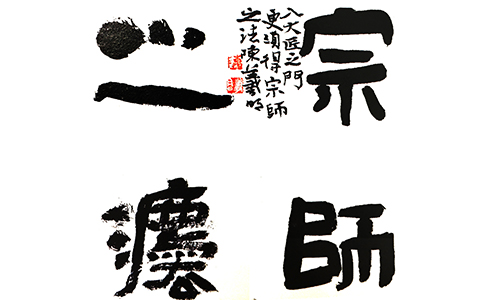 宗師
之灋
入大匠之門
更須得宗師
之法陳